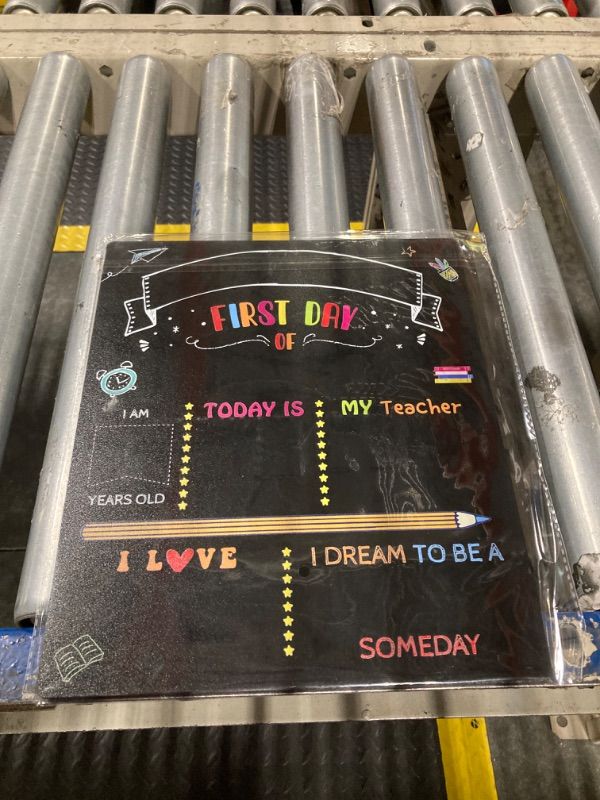 FIRST DAY
OF
I AM
TODAY IS
MY Teacher
YEARS OLD
I L♥VE
I DREAM TO BE A
SOMEDAY